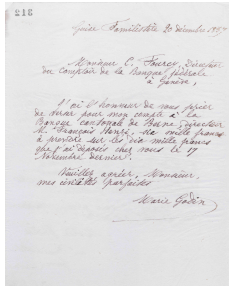 212
Guise Familistère 20 décembre 18
Monsieur C. Fourcy, Directeur
du Comptoir de la Banque fédérale
à Genève,
J'ai l'honneur de vous prier
de verser pour mon compte à la
Banque cantonale de Berne, Directeur
M. François Henri, six mille francs
à prendre sur les dix mille francs
que j'ai déposés chez vous le 17
Novembre dernier.
Veuillez agréer, Monsieur,
mes civilités parfaites
Marie Godin